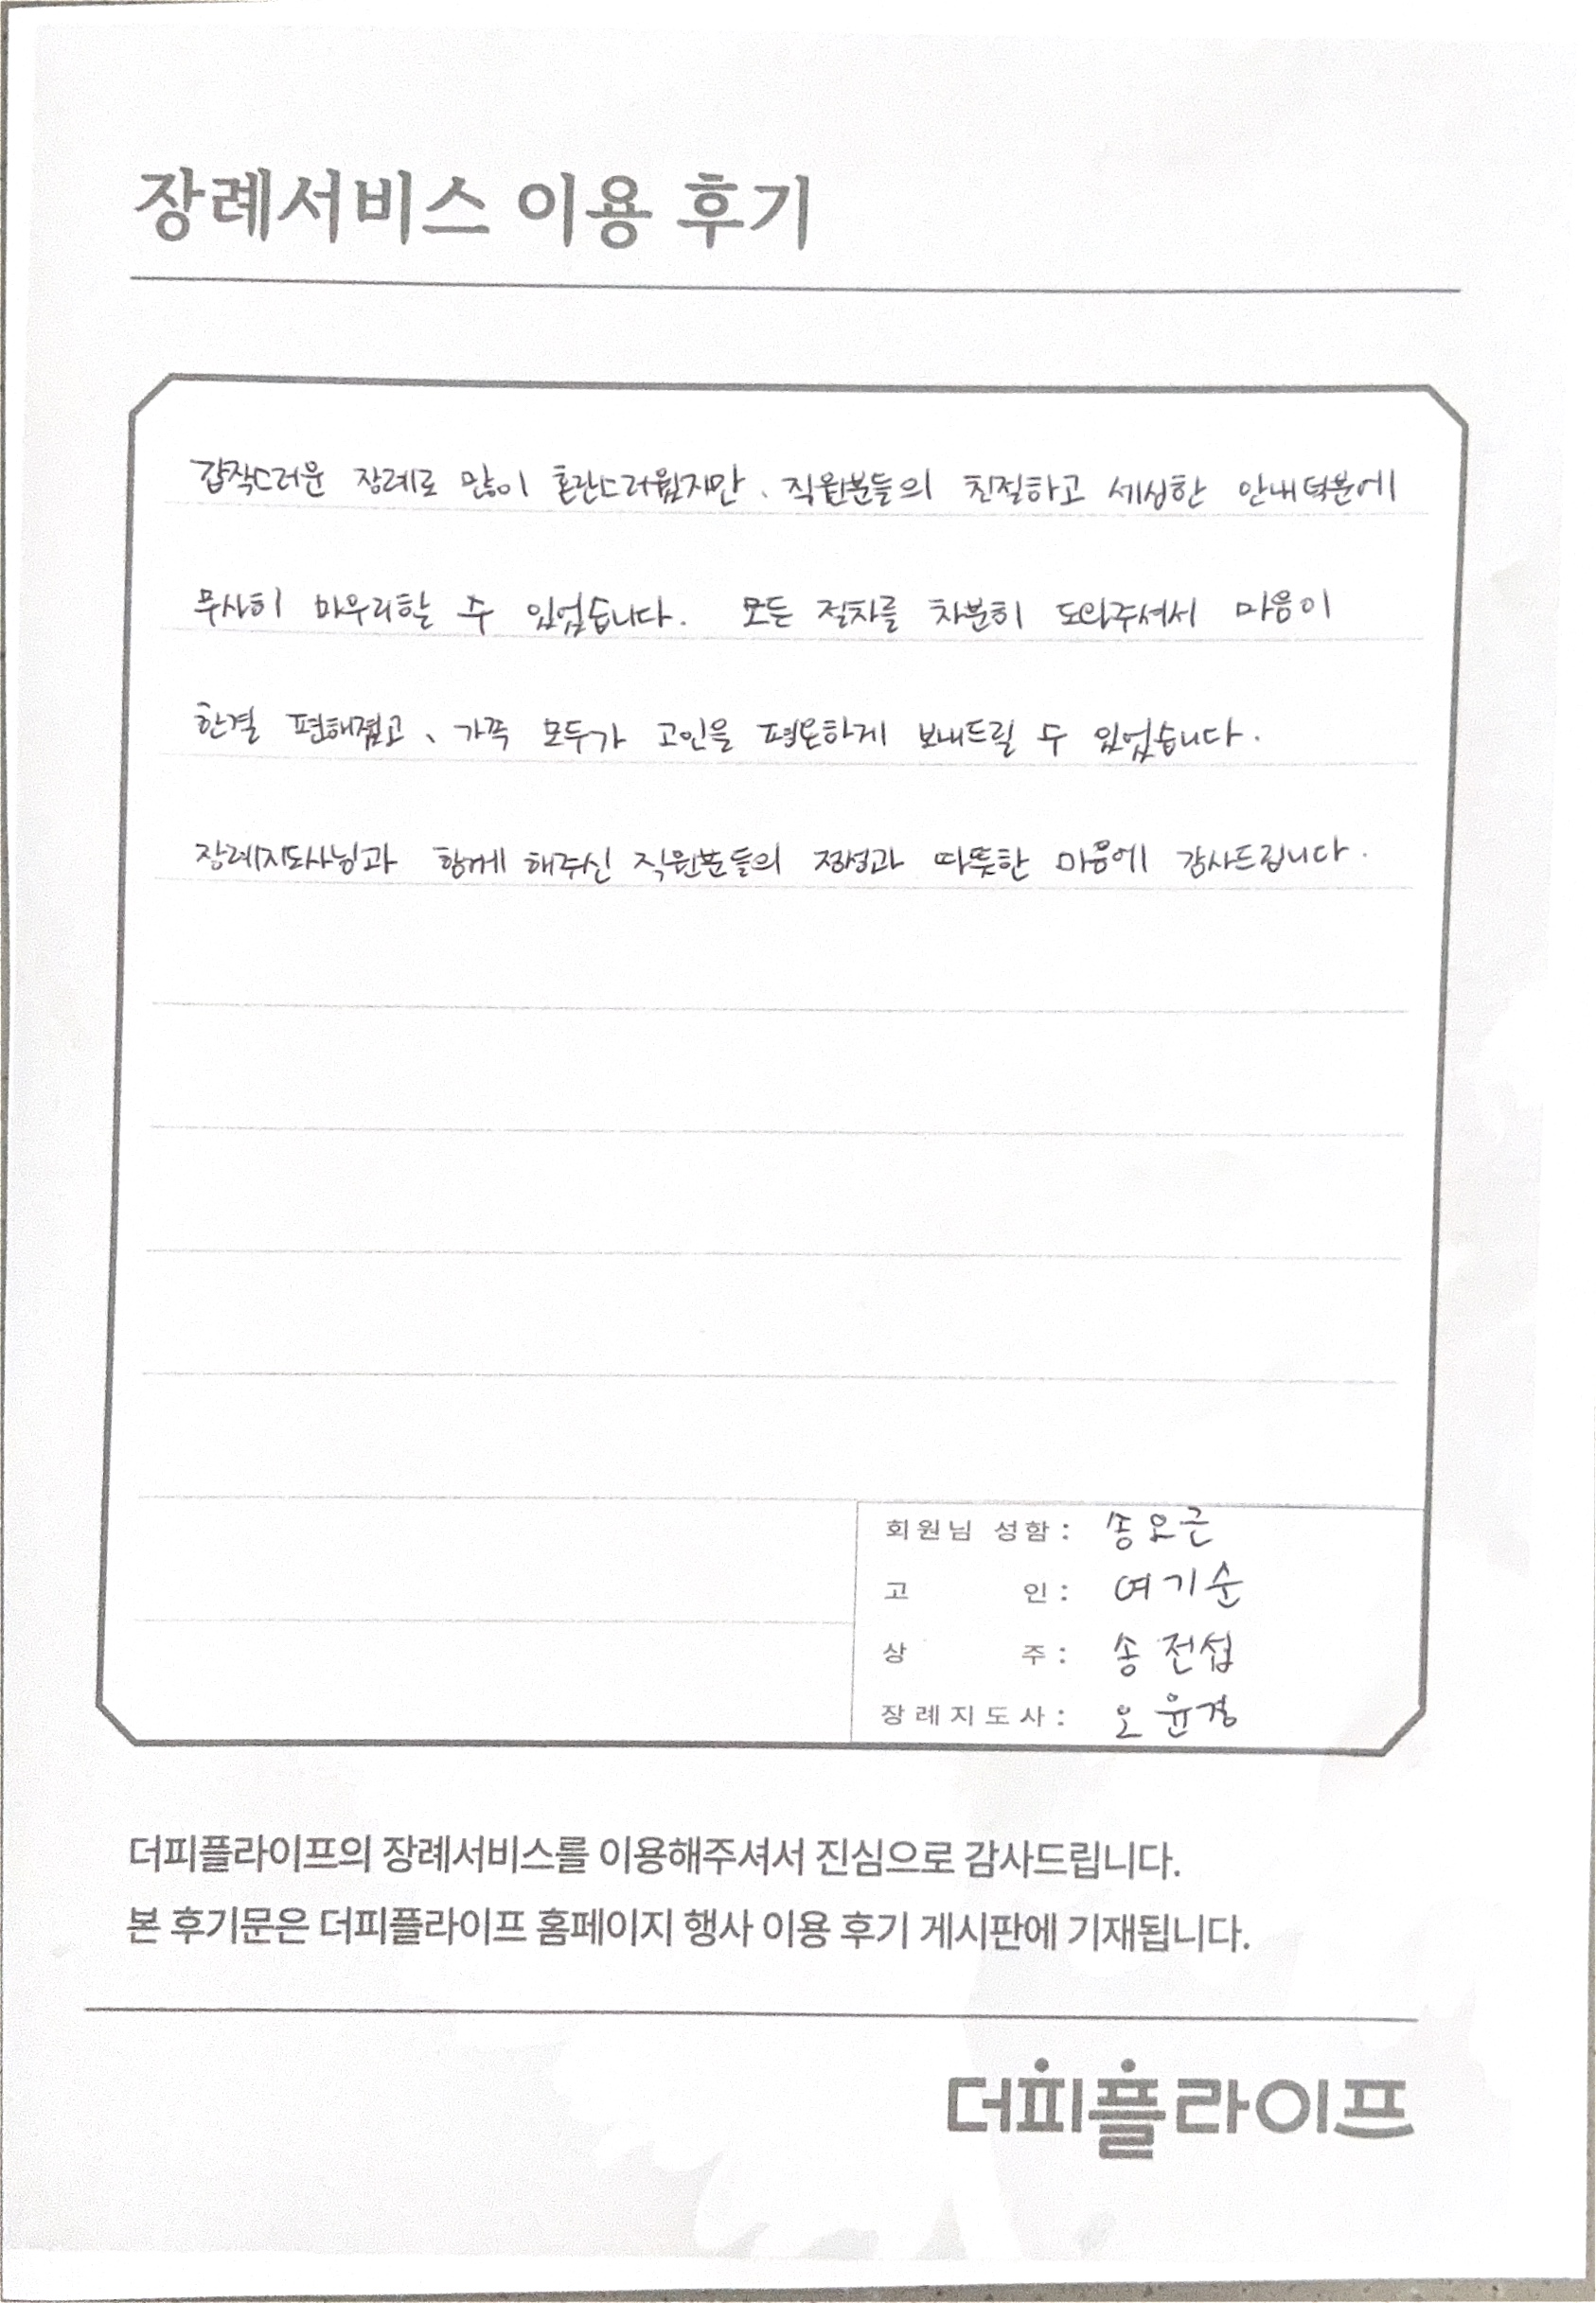 장례서비스 이용 후기
갑작스러운 장례로 많이 혼란스러웠지만, 직원분들의 친절하고 세심한 안내덕분에
무사히 마무리할 수 있었습니다. 모든 절차를 차분히 도와주셔서 마음이
한결 편해졌고, 가족 모두가 고인을 평온하게 보내드릴 수 있었습니다.
장례지도사님과 함께 해주신 직원분들의 정성과 따뜻한 마음에 감사드립니다.
회원님 성함 : 송오근
고 인 : 여기순
상 주 : 송전섭
장례지도사 : 오윤경
더피플라이프의 장례서비스를 이용해주셔서 진심으로 감사드립니다.
본 후기문은 더피플라이프 홈페이지 행사 이용 후기 게시판에 기재됩니다.
더피플라이프